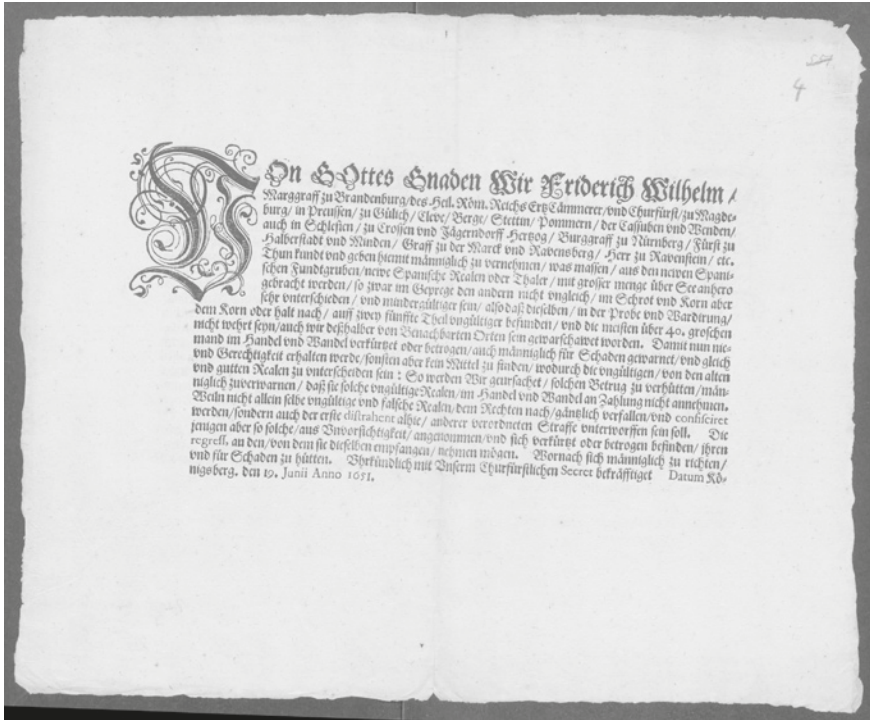 4
VOn GOttes Gnaden Wir Friderich Wilhelm /
Marggraff zu Brandenburg / des Heil. Röm. Reichs Ertz Cämmerer / vnd Churfürst / zu Magde-
burg / in Preussen / zu Gülich / Cleve / Berge / Stettin / Pommern / der Cassuben vnd Wenden /
auch in Schlesien / zu Crossen vnd Jägerndorff Hertzog / Burggraff zu Nürnberg / Fürst zu
Halberstadt vnd Minden / Graff zu der Marck vnd Ravensberg / Herr zu Ravenstein / etc.
Thun kundt vnd geben hiemit männiglich zu vernehmen / was massen / aus den newen Spani-
schen Fundtgruben / newe Spanische Realen oder Thaler / mit grosser menge über See anhero
gebracht werden / so zwar im Geprege den andern nicht vngleich / im Schrot vnd Korn aber
sehr vnterschieden / vnd mindergültiger sein / also daß dieselben / in der Probe vnd Wardirung /
dem Korn oder halt nach / auff zwey fünffte Theil vngültiger befunden / vnd die meisten über 40. groschen
nicht wehrt seyn / auch wir deßhalber von Benachbarten Orten sein gewarschawet worden. Damit nun nie-
mand im Handel vnd Wandel verkürtzet oder betrogen / auch männiglich für Schaden gewarnet / vnd gleich
vnd Gerechtigkeit erhalten werde / sonsten aber kein Mittel zu finden / wodurch die vngültigen / von den alten
vnd gutten Realen zu vnterscheiden sein : So werden Wir geursachet / solchen Betrug zu verhütten / män-
niglich zuverwarnen / daß sie solche vngültige Realen / im Handel vnd Wandel an Zahlung nicht annehmen.
Weiln nicht allein selbe vngültige vnd falsche Realen / dem Rechten nach / gäntzlich verfallen / vnd confisciret
werden / sondern auch der erste distrahent alhie / anderer verordneten Straffe vnterworffen sein soll. Die
jenigen aber so solche / aus Vnvorsichtigkeit / angenommen / vnd sich verkürtzt oder betrogen befinden / ihren
regress. an den / von dem sie dieselben empfangen / nehmen mögen. Wornach sich männiglich zu richten /
vnd für Schaden zu hütten. Vhrkündlich mit Vnserm Churfürstlichen Secret bekräfftiget Datum Kö-
nigsberg. den 19. Junii Anno 1651.